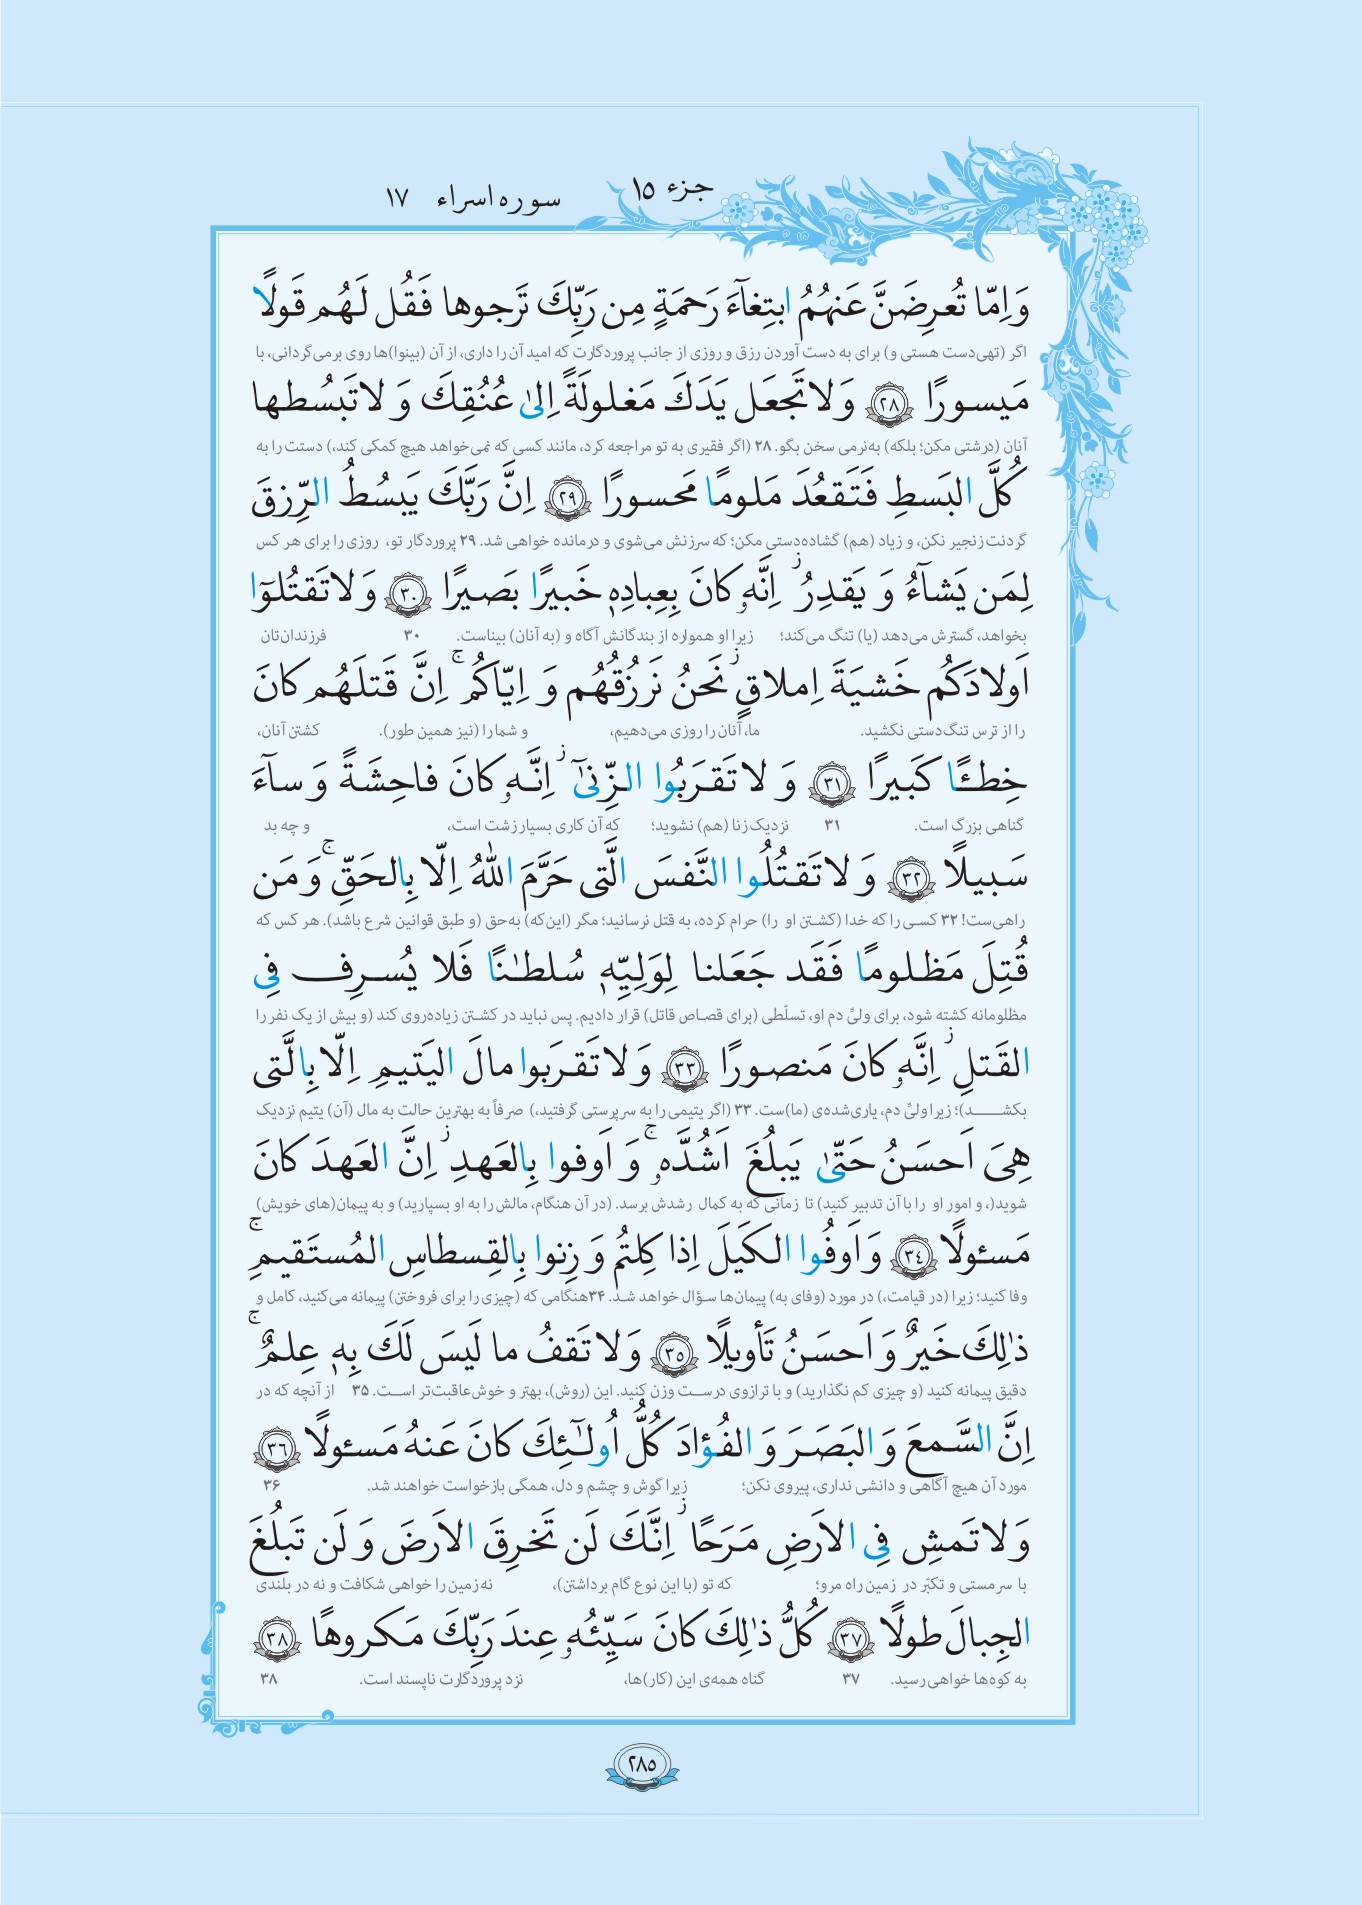 جزء ۱۵
سوره اسراء ۱۷
وَ اِمّا تُعرِضَنَّ عَنهُمُ ابتِغآءَ رَحمَةٍ مِن رَبِّكَ تَرجوها فَقُل لَهُم قَولًا
اگر (تهی‌دست هستی و) برای به دست آوردن رزق و روزی از جانب پروردگارت که امید آن را داری، از آن (بینوا)ها روی برمی‌گردانی، با
مَيسورًا ﴿٢٨﴾ وَ لا تَجعَل يَدَكَ مَغلولَةً اِلىٰ عُنُقِكَ وَ لا تَبسُطها
آنان (درشتی مکن؛ بلکه) به‌نرمی سخن بگو. ۲۸ (اگر فقیری به تو مراجعه کرد، مانند کسی که نمی‌خواهد هیچ کمکی کند،) دستت را به
كُلَّ البَسطِ فَتَقعُدَ مَلومًا مَحسورًا ﴿٢٩﴾ اِنَّ رَبَّكَ يَبسُطُ الرِّزقَ
گردنت زنجیر نکن، و زیاد (هم) گشاده‌دستی مکن؛ که سرزنش می‌شوی و درمانده خواهی شد. ۲۹ پروردگار تو، روزی را برای هر کس
لِمَن يَشآءُ وَ يَقدِرُ ۚز اِنَّهٗ كانَ بِعِبادِهٖ خَبيرًا بَصيرًا ﴿٣٠﴾ وَ لا تَقتُلوٓا
بخواهد، گسترش می‌دهد (یا) تنگ می‌کند؛ زیرا او همواره از بندگانش آگاه و (به آنان) بیناست. ۳۰ فرزندان‌تان
اَولادَكُم خَشيَةَ اِملاقٍ ز نَحنُ نَرزُقُهُم وَ اِيّاكُم ۚ اِنَّ قَتلَهُم كانَ
را از ترس تنگ‌دستی نکشید. ما، آنان را روزی می‌دهیم، و شما را (نیز همین طور). کشتن آنان،
خِطـًٔا كَبيرًا ﴿٣١﴾ وَ لا تَقرَبُوا الزِّنىٰٓ ز اِنَّهٗ كانَ فاحِشَةً وَ سآءَ
گناهی بزرگ است. ۳۱ نزدیک زنا (هم) نشوید؛ که آن کاری بسیار زشت است، و چه بد
سَبيلًا ﴿٣٢﴾ وَ لا تَقتُلُوا النَّفسَ الَّتى حَرَّمَ اللّٰهُ اِلّا بِالحَقِّ ۚ وَ مَن
راهی‌ست! ۳۲ کسی را که خدا (کشتن او را) حرام کرده، به قتل نرسانید؛ مگر (این‌که) به‌حق (و طبق قوانین شرع باشد). هر کس که
قُتِلَ مَظلومًا فَقَد جَعَلنا لِوَلِيِّهٖ سُلطٰنًا فَلا يُسرِف فِى
مظلومانه کشته شود، برای ولیّ دم او، تسلّطی (برای قصاص قاتل) قرار دادیم. پس نباید در کشتن زیاده‌روی کند (و بیش از یک نفر را
القَتلِ ز اِنَّهٗ كانَ مَنصورًا ﴿٣٣﴾ وَ لا تَقرَبوا مالَ اليَتيمِ اِلّا بِالَّتى
بکشد)؛ زیرا ولیّ دم، یاری‌شده‌ی (ما)ست. ۳۳ (اگر یتیمی را به سرپرستی گرفتید،) صرفاً به بهترین حالت به مال (آن) یتیم نزدیک
هِىَ اَحسَنُ حَتّىٰ يَبلُغَ اَشُدَّهٗ ۚ وَ اَوفوا بِالعَهدِ ز اِنَّ العَهدَ كانَ
شوید(، و امور او را با آن تدبیر کنید) تا زمانی که به کمال رشدش برسد. (در آن هنگام، مالش را به او بسپارید) و به پیمان(های خویش)
مَسئولًا ﴿٣٤﴾ وَ اَوفُوا الكَيلَ اِذا كِلتُم وَ زِنوا بِالقِسطاسِ المُستَقيمِ ۚ
وفا کنید؛ زیرا (در قیامت،) در مورد (وفای به) پیمان‌ها سؤال خواهد شد. ۳۴هنگامی که (چیزی را برای فروختن) پیمانه می‌کنید، کامل و
ذٰلِكَ خَيرٌ وَ اَحسَنُ تَأويلًا ﴿٣٥﴾ وَ لا تَقفُ ما لَيسَ لَكَ بِهٖ عِلمٌ ۚ
دقیق پیمانه کنید (و چیزی کم نگذارید) و با ترازوی درست وزن کنید. این (روش)، بهتر و خوش‌عاقبت‌تر است. ۳۵ از آنچه که در
اِنَّ السَّمعَ وَ البَصَرَ وَ الفُؤادَ كُلُّ اُولٰٓئِكَ كانَ عَنهُ مَسئولًا ﴿٣٦﴾
مورد آن هیچ آگاهی و دانشی نداری، پیروی نکن؛ زیرا گوش و چشم و دل، همگی بازخواست خواهند شد. ۳۶
وَ لا تَمشِ فِى الاَرضِ مَرَحًا ز اِنَّكَ لَن تَخرِقَ الاَرضَ وَ لَن تَبلُغَ
با سرمستی و تکبّر در زمین راه مرو؛ که تو (با این نوع گام برداشتن)، نه زمین را خواهی شکافت و نه در بلندی
الجِبالَ طولًا ﴿٣٧﴾ كُلُّ ذٰلِكَ كانَ سَيِّئُهٗ عِندَ رَبِّكَ مَكروهًا ﴿٣٨﴾
به کوه‌ها خواهی رسید. ۳۷ گناه همه‌ی این (کار)ها، نزد پروردگارت ناپسند است. ۳۸
۲۸۵